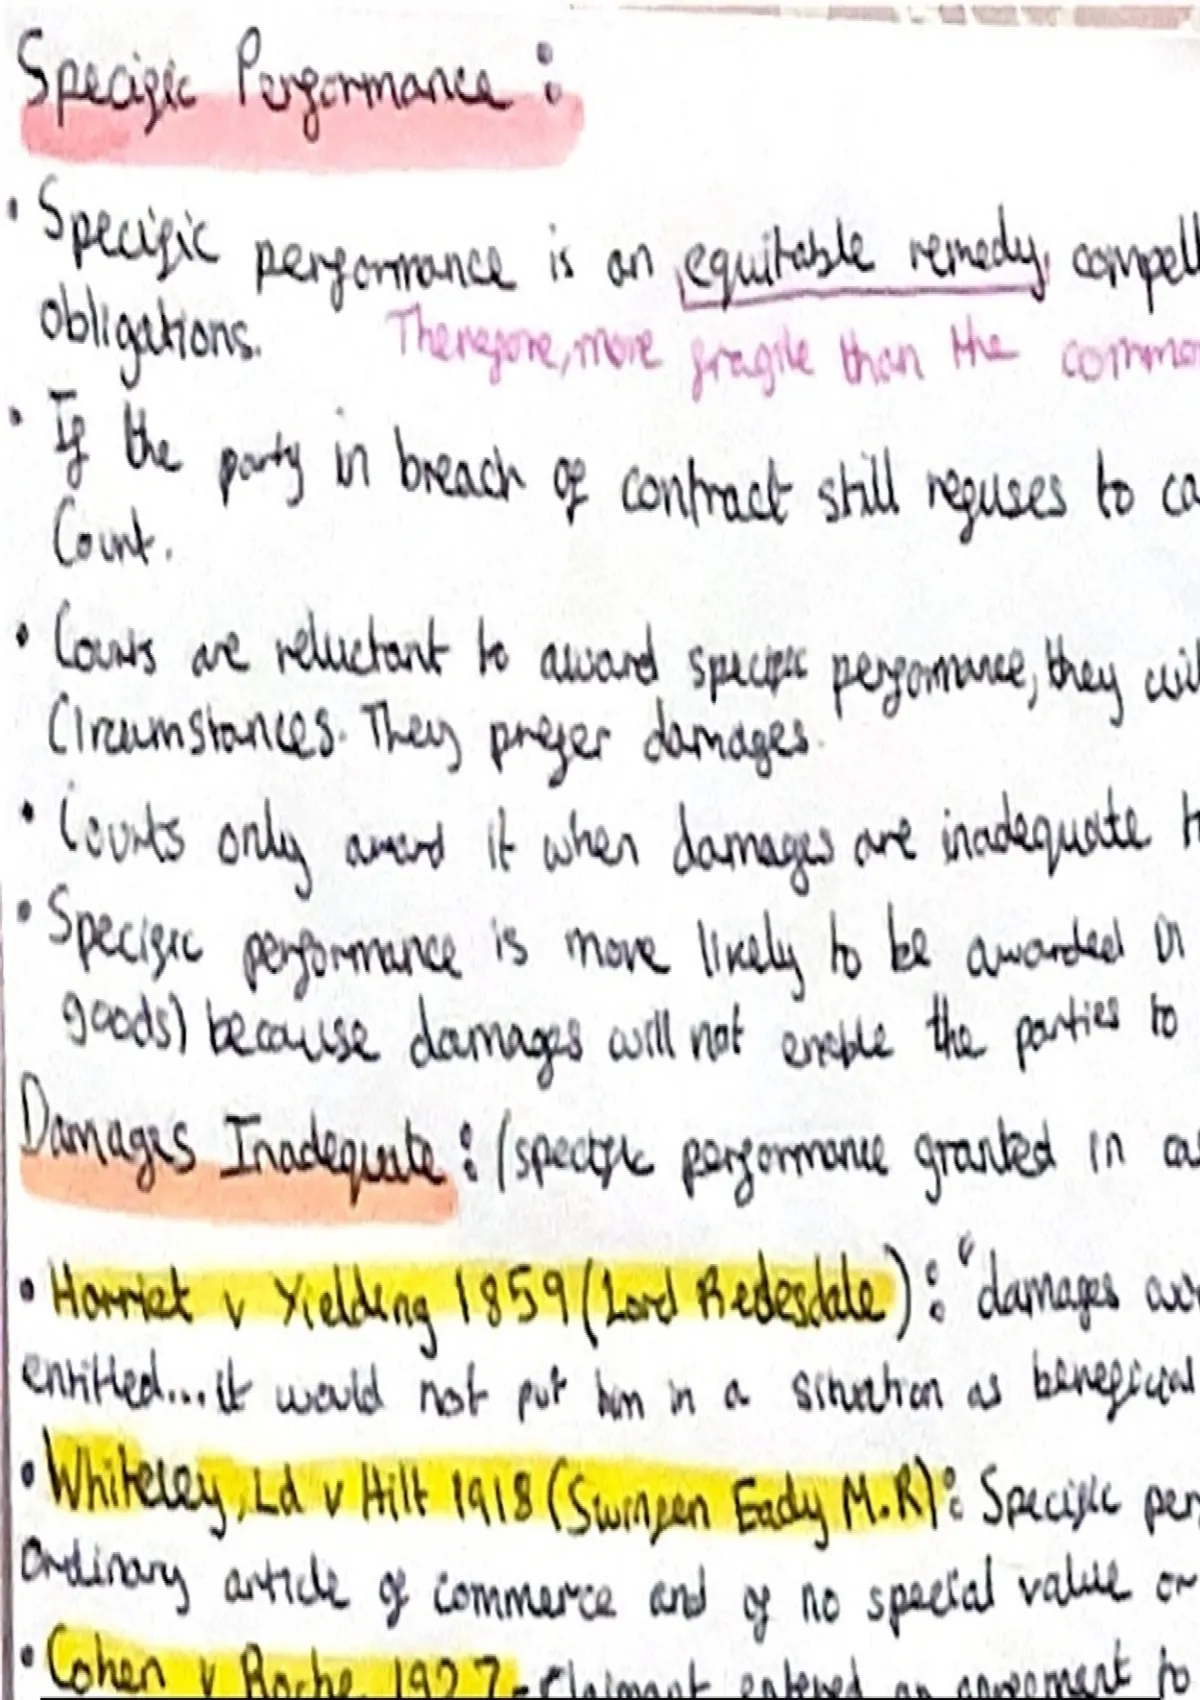 Specific Performance:
• Specific performance is an equitable remedy, compell
obligations. Therefore, more fragile than the common
• If the party in breach of contract still refuses to ca
Court.
• Courts are reluctant to award specific performance, they wil
Circumstances. They prefer damages.
• Courts only award it when damages are inadequate t
• Specific performance is more likely to be awarded in
goods) because damages will not enable the parties to
Damages Inadequate: (specific performance granted in cas
• Harriet v Yielding 1859 (Lord Redesdale): "damages wo
entitled... it would not put him in a situation as benefical
• Whiteley, Ld v Hilt 1918 (Swinfen Eady M.R): Specific per
Ordinary article of commerce and of no special value or
• Cohen v Roche 1927 - Claimant entered an agreement to